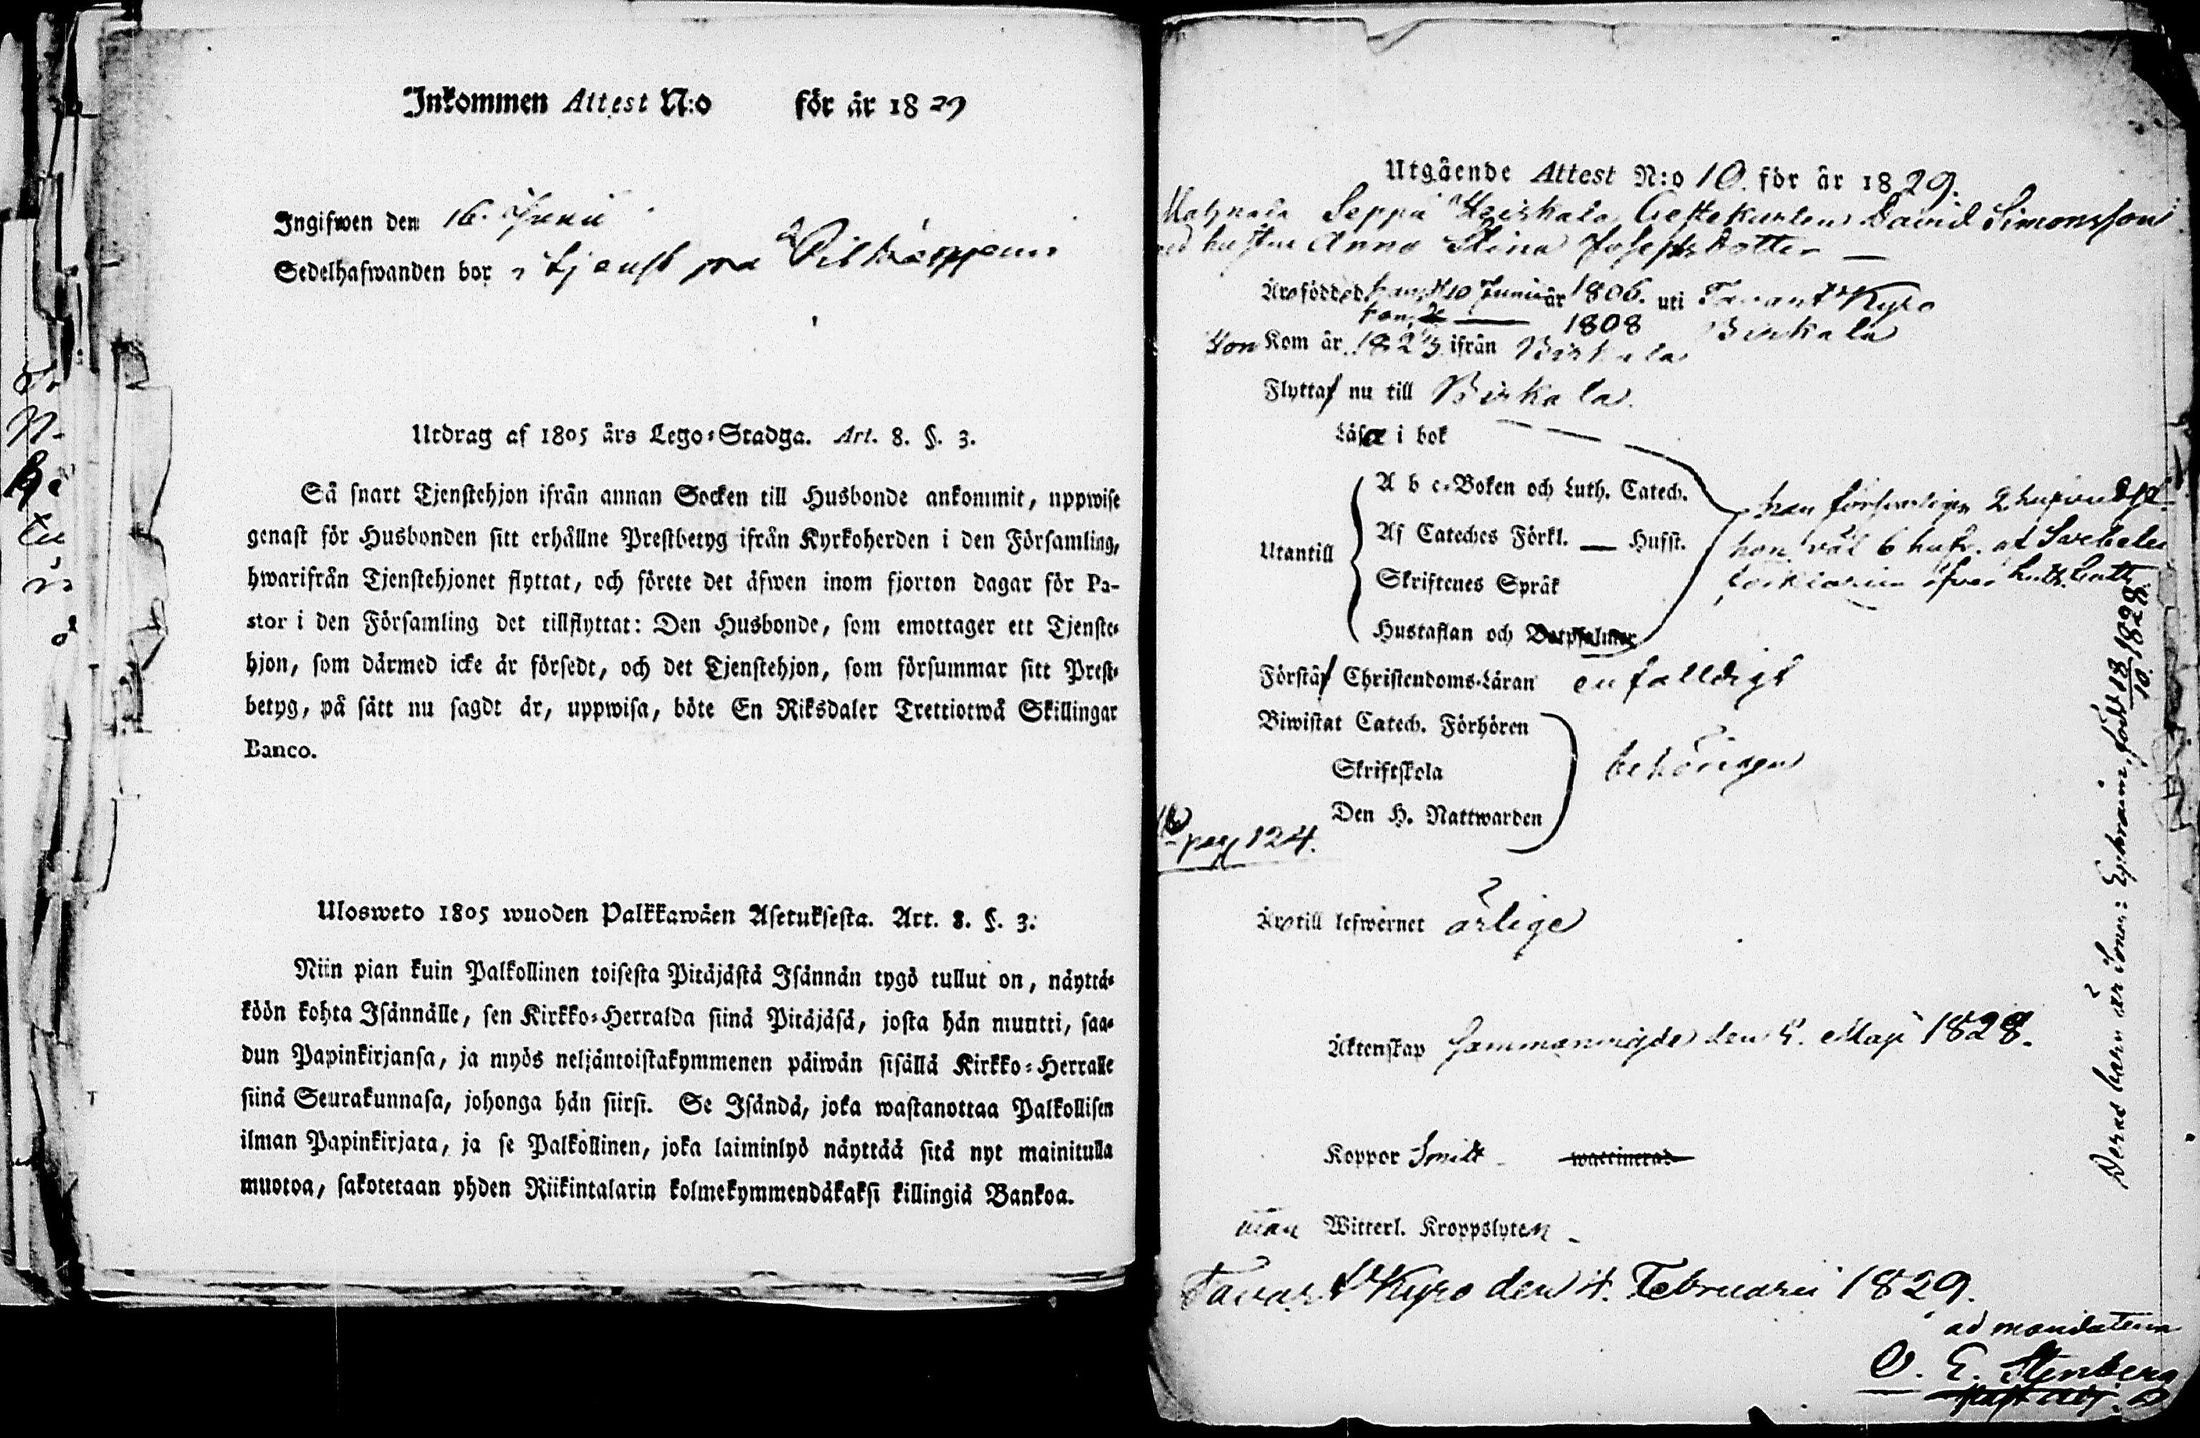 Inkommen Attest N:o för år 1829
Ingifwen den 16. Junii
Sedelhafwanden bor i tjenst på
Utdrag af 1805 års Lego-Stadga. Art. 8. §. 3.
Så snart Tjenstehjon ifrån annan Socken till Husbonde ankommit, uppwise
genast för Husbonden sitt erhållne Prestbetyg ifrån Kyrkoherden i den Församling,
hwarifrån Tjenstehjonet flyttat, och förete det äfwen inom fjorton dagar för Pa-
stor i den Församling det tillflyttat: Den Husbonde, som emottager ett Tjenste-
hjon, som därmed icke är försedt, och det Tjenstehjon, som försummar sitt Prest-
betyg, på sätt nu sagdt är, uppwisa, böte En Riksdaler Trettiotwå Skillingar
Banco.
Ulosweto 1805 wuoden Palkkawäen Asetuksesta. Art. 8. §. 3:
Niin pian kuin Palkollinen toisesta Pitäjästä Isännän tygö tullut on, näyttä-
köön kohta Isännälle, sen Kirkko-Herralda siinä Pitäjäsä, josta hän muutti, saa-
dun Papinkirjansa, ja myös neljäntoistakymmenen päiwän sisällä Kirkko-Herralle
siinä Seurakunnasa, johonga hän siirsi. Se Isändä, joka wastanottaa Palkollisen
ilman Papinkirjata, ja se Palkollinen, joka laiminlyö näyttää sitä nyt mainitulla
muotoa, sakotetaan yhden Riikintalarin kolmekymmendäkaksi killingiä Bankoa.
Utgående Attest N:o 10. för år 1829.
Seppä David Simonsson
hustru Anna Stina Josephsdotter
Äro födde han d 10 Junii år 1806. uti Tavast Kyro
hon 1808 Birkala
Hon Kom år 1823 ifrån Birkala
Flytta nu till Birkala.
Läsa i bok
A b c-Boken och Luth. Catech.
Af Cateches Förkl. — Hufst.
Utantill
Skriftenes Språk
Hustaflan och Botpsalmer
han försvarligen 2 hufvud
hon väl 6 hufv. af Svebelii
förklaring öfver Luth. Cath.
Förstå Christendoms-Läran enfaldigt
Biwistat Catech. Förhören
Skriftskola
behörigen
Den H. Nattwarden
pag 124.
Äro till lefwernet ärlige
Äktenskap sammanvigde den 8. Maji 1828.
Koppor Smitt - waccinerad
utan Witterl. Kroppslyten -
Deras barn är Sonen: Ephraim, född 18/10 1828.
Tavast Kyro den 4. Februarii 1829.
ad mandatum
O. E. Stenberg